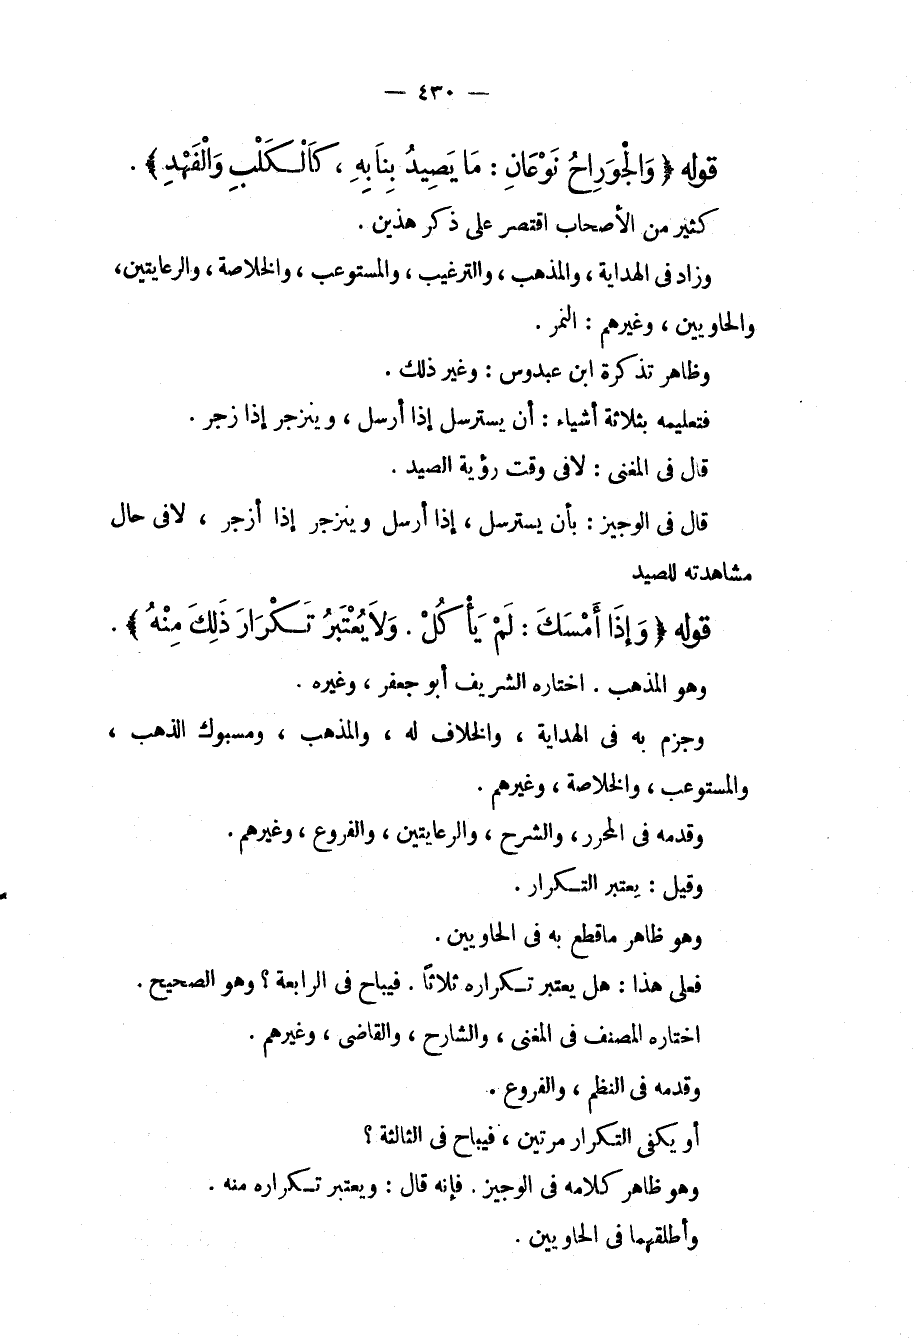 — ٤٣٠ —
قوله ﴿ وَالْجَوَرِاحُ نَوْعَانِ : مَا يَصِيدُ بِنَابِهِ ، كَالْكَلْبِ وَالْفَهْدِ ﴾ .
كثير من الأصحاب اقتصر على ذكر هذين .
وزاد فى الهداية ، والمذهب ، والترغيب ، والمستوعب ، والخلاصة ، والرعايتين،
والحاويين ، وغيرهم : النمر .
وظاهر تذكرة ابن عبدوس : وغير ذلك .
فتعليمه بثلاثة أشياء : أن يسترسل إذا أرسل ، وينزجر إذا زجر .
قال فى المغنى : لافى وقت رؤية الصيد .
قال فى الوجيز : بأن يسترسل ، إذا أرسل وينزجر إذا أزجر ، لافى حال
مشاهدته للصيد
قوله ﴿ وَإِذَا أَمْسَكَ : لَمْ يَأْكُلْ . وَلَا يُعْتَبَرُ تَكْرَارَ ذَلِكَ مِنْهُ ﴾ .
وهو المذهب . اختاره الشريف أبو جعفر ، وغيره .
وجزم به فى الهداية ، والخلاف له ، والمذهب ، ومسبوك الذهب ،
والمستوعب ، والخلاصة ، وغيرهم .
وقدمه فى المحرر ، والشرح ، والرعايتين ، والفروع ، وغيرهم .
وقيل : يعتبر التكرار .
وهو ظاهر ماقطع به فى الحاويين .
فعلى هذا : هل يعتبر تكراره ثلاثًا . فيباح فى الرابعة ؟ وهو الصحيح .
اختاره المصنف فى المغنى ، والشارح ، والقاضى ، وغيرهم .
وقدمه فى النظم ، والفروع .
أو يكفى التكرار مرتين ، فيباح فى الثالثة ؟
وهو ظاهر كلامه فى الوجيز . فإنه قال : ويعتبر تكراره منه .
وأطلقهما فى الحاويين .